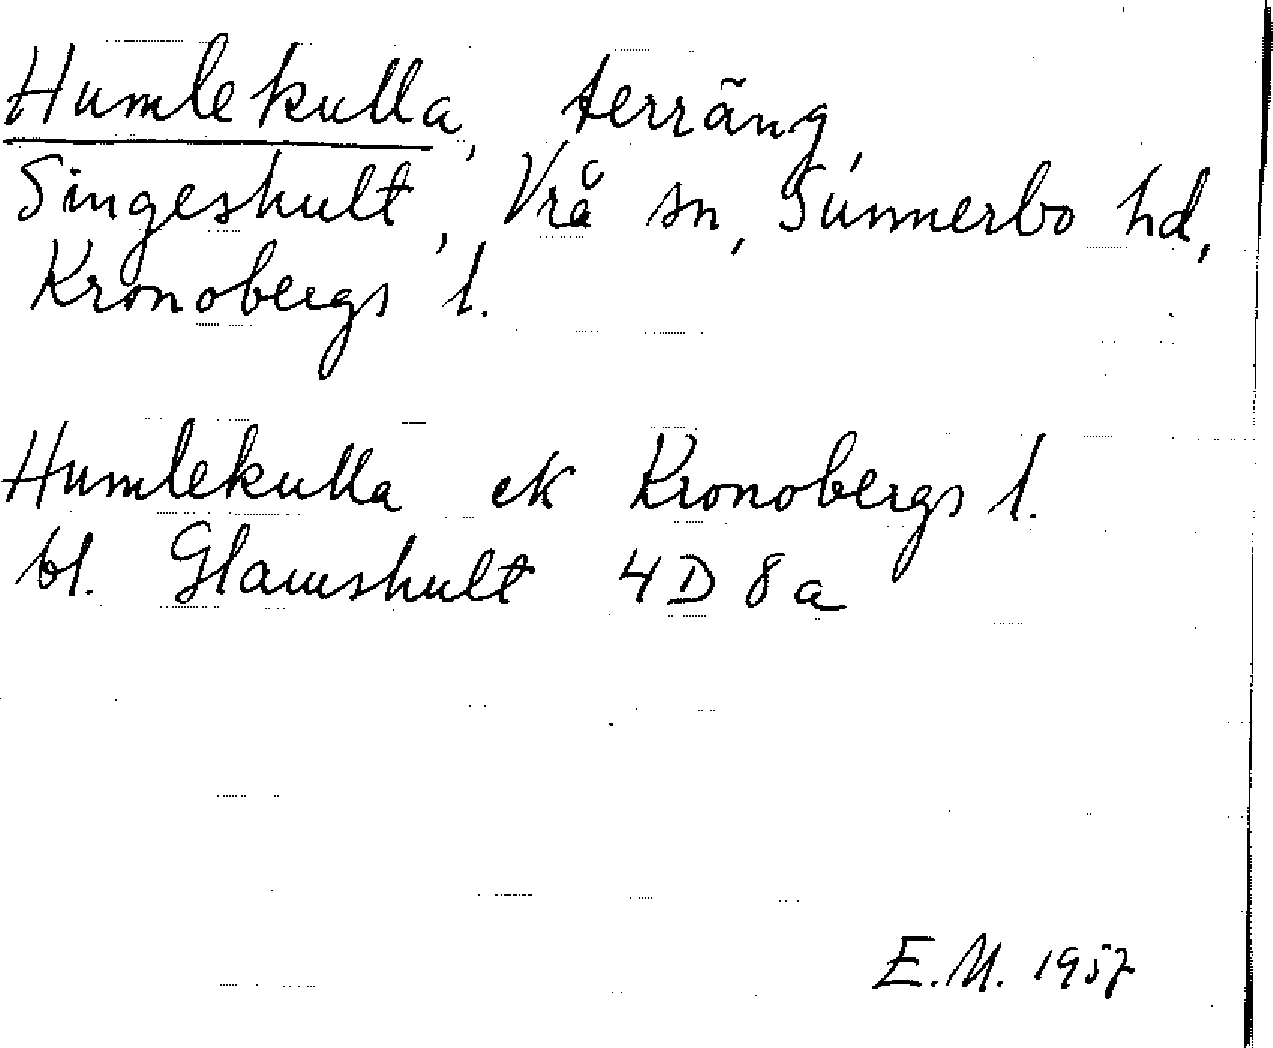 Humlekulla, terräng,
Singeshult, Vrå sn, Sunnerbo hd,
Kronobergs l.
Humlekulla ek Kronobergs l.
bl. Glamshult 4D 8a
E.M. 1957